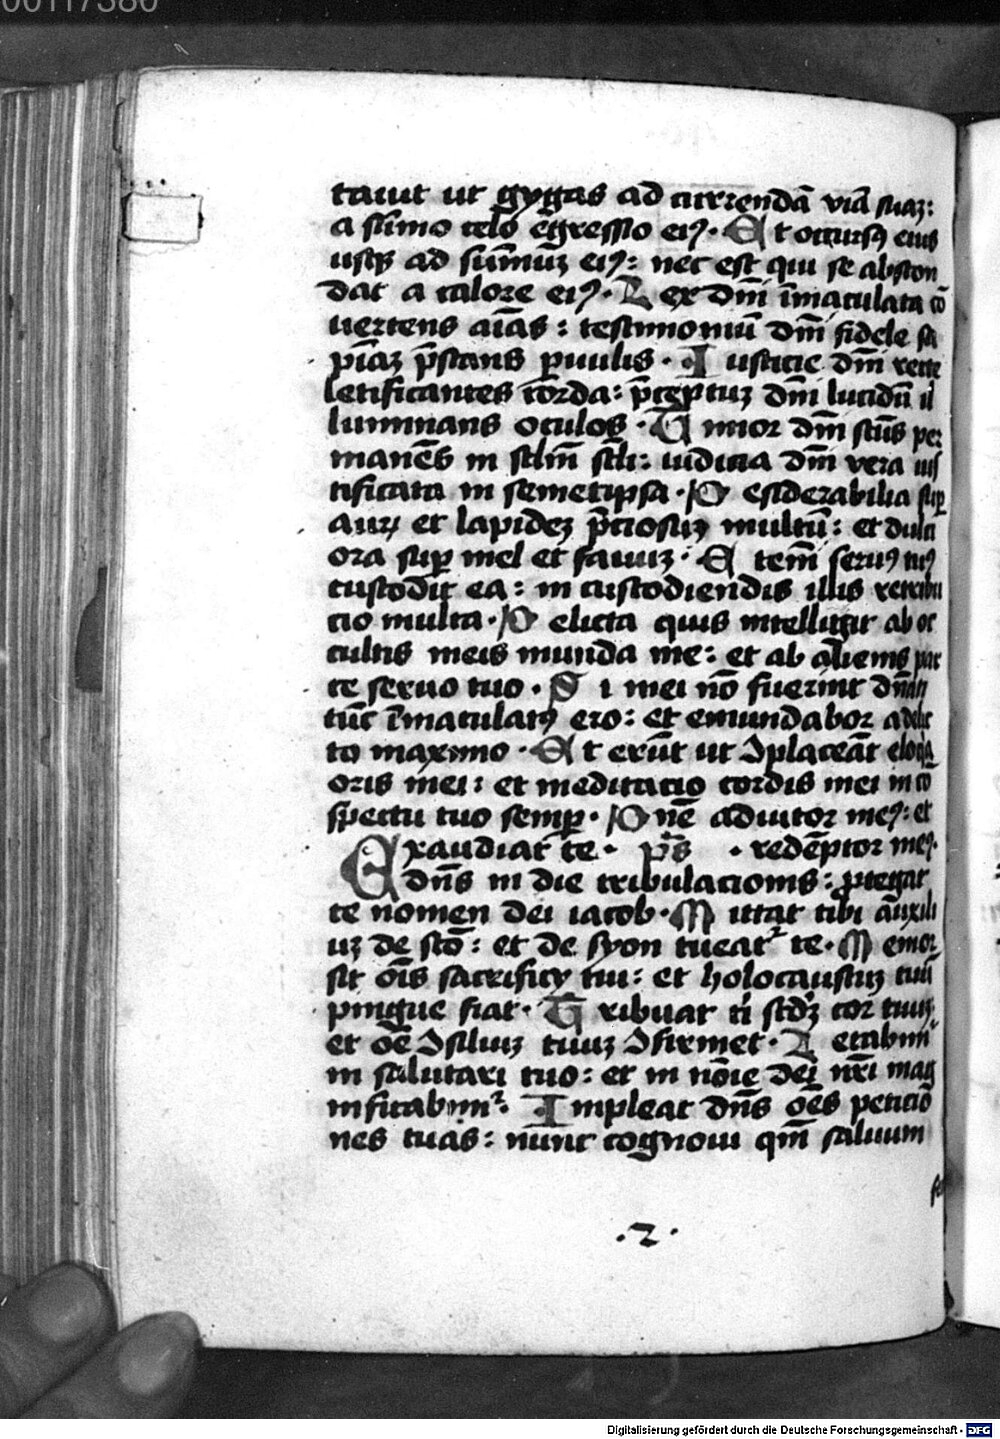 00117380
tauit ut gygas ad currendā viā suaꝫ:
a sūmo celo egressio eiꝰ. Et occursꝰ eius
usqꝫ ad summuꝫ eiꝰ: nec est qui se abscon
dat a calore eiꝰ. Lex dnī īmaculata cō
uertens aīas: testimoniū dnī fidele sa
pīaꝫ p̄stans puulis. Iusticie dnī recte
letificantes corda: p̄ceptuꝫ dnī lucidū il
luminans oculos. Timor dnī sctūs per
manens in sclm̄ scli: iudicia dnī vera ius
tificata in semetipsa. Desiderabilia sup
auꝝ et lapideꝫ p̄ciosuꝫ multū: et dulci
ora sup mel et fauuꝫ. Etenī seruꝰ tuꝰ
custodit ea: in custodiendis illis retribu
cio multa. Delicta quis intelligit ab oc
cultis meis munda me: et ab alienis par
ce seruo tuo. Si mei nō fuerint dn̄ati
tūc īmaculatꝰ ero: et emundabor a delic
to maximo. Et erūt ut ꝯplaceāt eloqa
oris mei: et meditacio cordis mei in cō
spectu tuo semper. Dn̄e adiutor meꝰ: et
Exaudiat te. p̄s . redēptor meꝰ.
dn̄s in die tribulacionis: ptegat
te nomen dei iacob. Mittat tibi auxili
uꝫ de scō: et de syon tueatr te. Memor
sit oīs sacrificy tui: et holocaustuꝫ tuū
pingue fiat. Tribuat ti scdꝫ cor tuuꝫ
et oē ꝯsiliuꝫ tuuꝫ ꝯfirmet. Letabimr
in salutari tuo: et in nōie dei nr̄i mag
nificabimr. Impleat dn̄s oēs peticiō
nes tuas: nunc cognoui qm̄ saluum
.2.
Digitalisierung gefördert durch die Deutsche Forschungsgemeinschaft - DFG